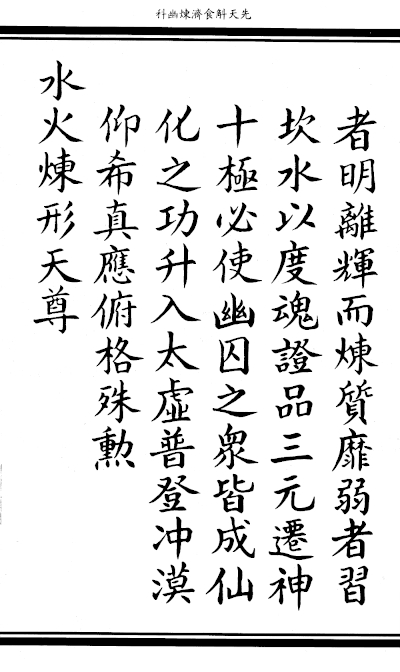 先天斛食濟煉幽科
者明離輝而煉質靡弱者習
坎水以度魂證品三元遷神
十極必使幽囚之衆皆成仙
化之功升入太虛普登冲漠
仰希真應俯格殊勳
水火煉形天尊